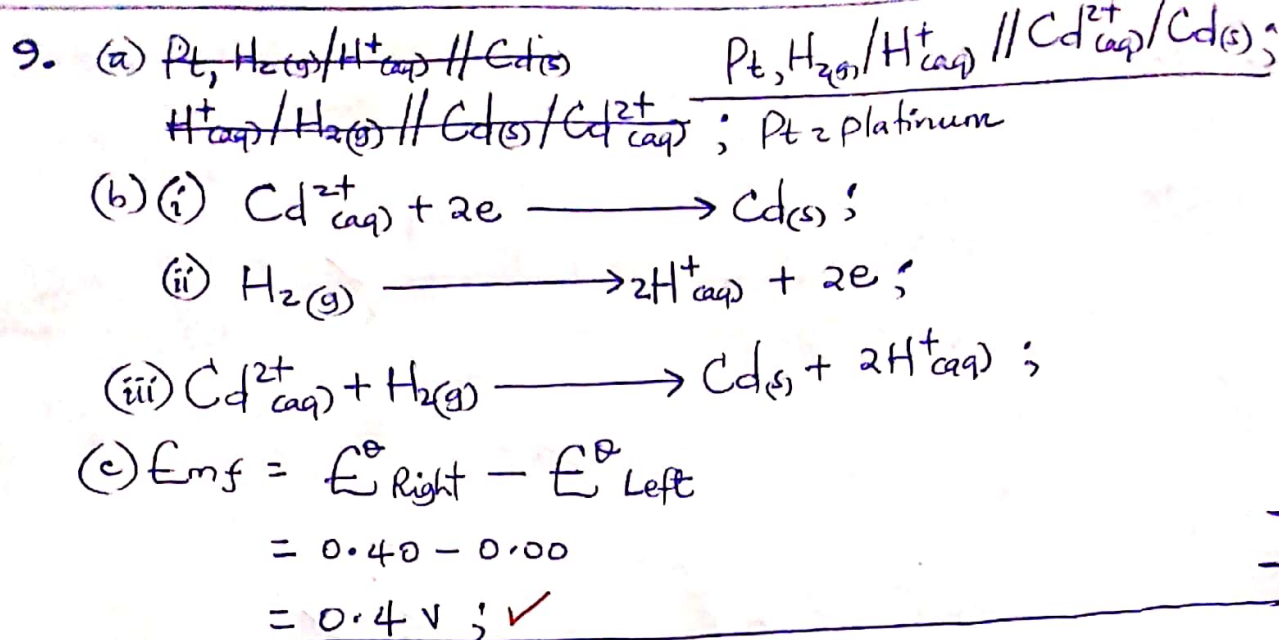 9. (a) Pt, H2(g)/H+(aq) // Cd(s) Pt, H2(g)/H+(aq) // Cd2+(aq)/Cd(s);
H+(aq)/H2(g) // Cd(s)/Cd2+(aq) ; Pt = platinum
(b)(i) Cd2+(aq) + 2e ⟶ Cd(s);
(ii) H2(g) ⟶ 2H+(aq) + 2e;
(iii) Cd2+(aq) + H2(g) ⟶ Cd(s) + 2H+(aq) ;
(c) Emf = E⦵ Right − E⦵ Left
= 0.40 − 0.00
= 0.4 V ; ✓